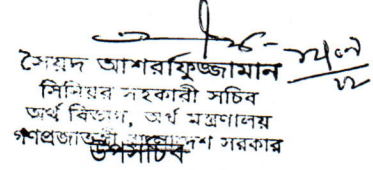 সৈয়দ আশরাফুজ্জামান
সিনিয়র সহকারী সচিব
অর্থ বিভাগ, অর্থ মন্ত্রণালয়
গণপ্রজাতন্ত্রী বাংলাদেশ সরকার
উপসচিব